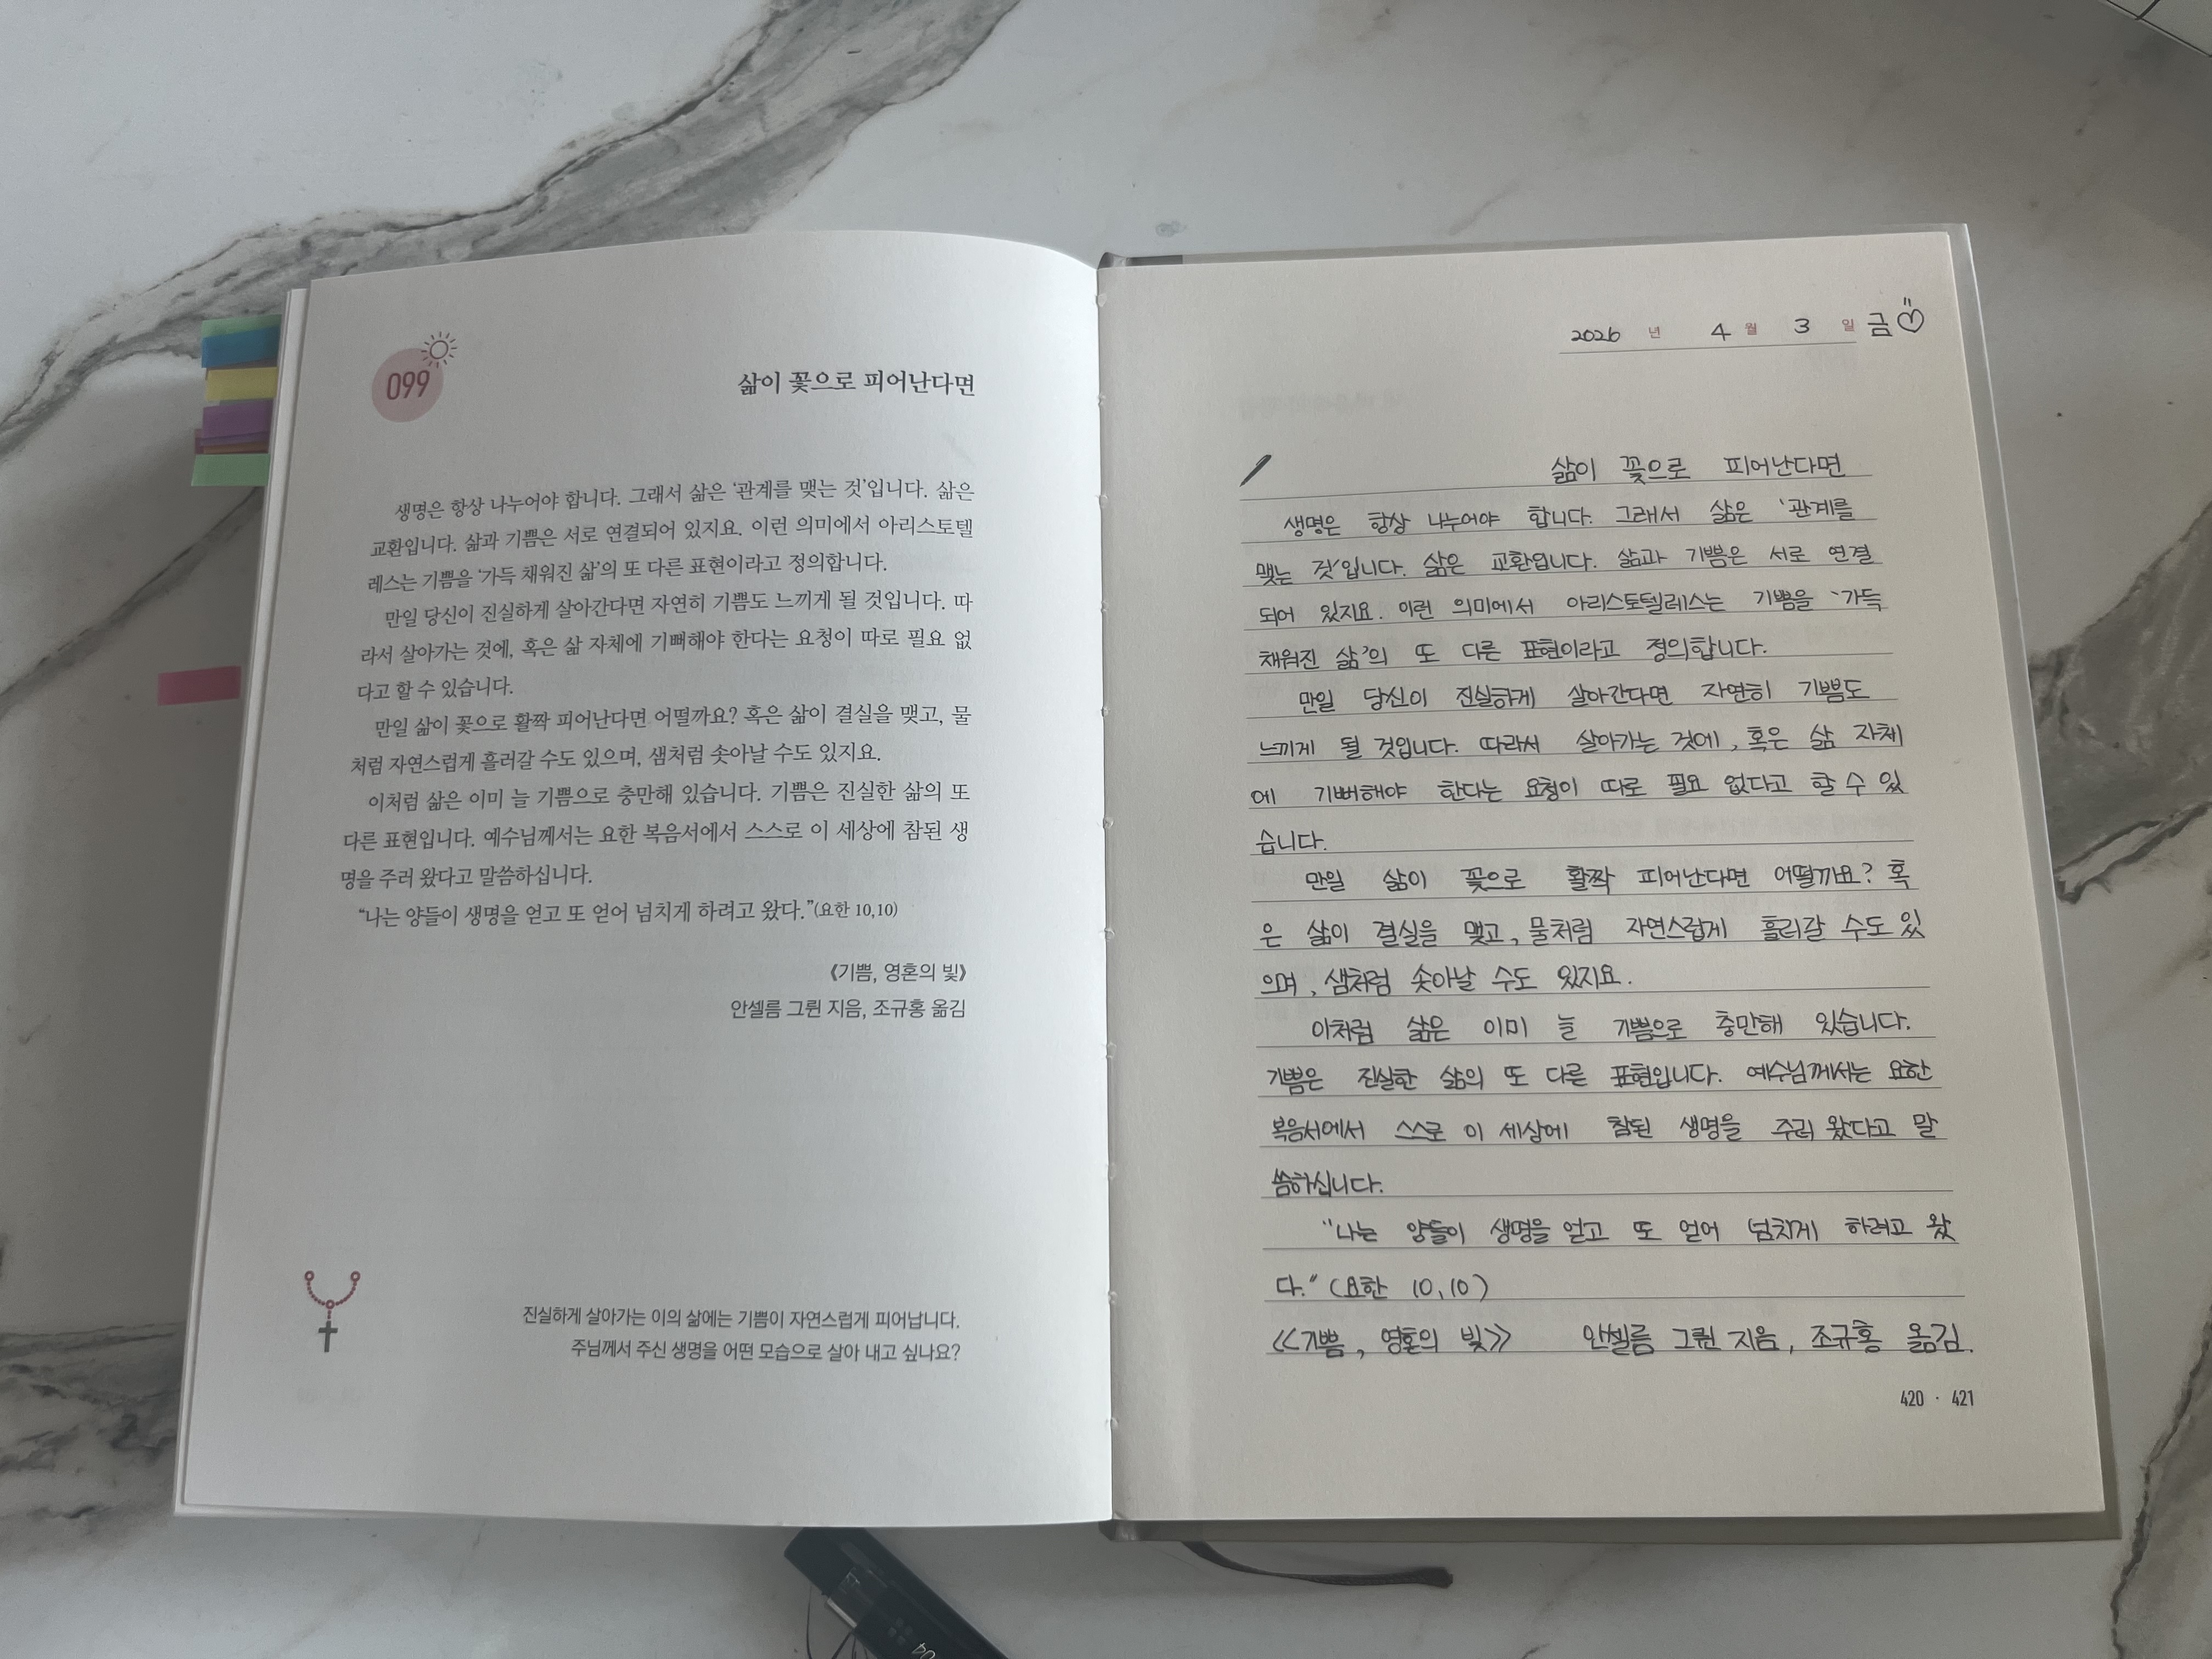 099
삶이 꽃으로 피어난다면
생명은 항상 나누어야 합니다. 그래서 삶은 ‘관계를 맺는 것’입니다. 삶은
교환입니다. 삶과 기쁨은 서로 연결되어 있지요. 이런 의미에서 아리스토텔
레스는 기쁨을 ‘가득 채워진 삶’의 또 다른 표현이라고 정의합니다.
만일 당신이 진실하게 살아간다면 자연히 기쁨도 느끼게 될 것입니다. 따
라서 살아가는 것에, 혹은 삶 자체에 기뻐해야 한다는 요청이 따로 필요 없
다고 할 수 있습니다.
만일 삶이 꽃으로 활짝 피어난다면 어떨까요? 혹은 삶이 결실을 맺고, 물
처럼 자연스럽게 흘러갈 수도 있으며, 샘처럼 솟아날 수도 있지요.
이처럼 삶은 이미 늘 기쁨으로 충만해 있습니다. 기쁨은 진실한 삶의 또
다른 표현입니다. 예수님께서는 요한 복음서에서 스스로 이 세상에 참된 생
명을 주러 왔다고 말씀하십니다.
“나는 양들이 생명을 얻고 또 얻어 넘치게 하려고 왔다.”(요한 10,10)
《기쁨, 영혼의 빛》
안셀름 그륀 지음, 조규홍 옮김
진실하게 살아가는 이의 삶에는 기쁨이 자연스럽게 피어납니다.
주님께서 주신 생명을 어떤 모습으로 살아 내고 싶나요?
2026 년 4 월 3 일 금
삶이 꽃으로 피어난다면
생명은 항상 나누어야 합니다. 그래서 삶은 ‘관계를
맺는 것’입니다. 삶은 교환입니다. 삶과 기쁨은 서로 연결
되어 있지요. 이런 의미에서 아리스토텔레스는 기쁨을 ‘가득
채워진 삶’의 또 다른 표현이라고 정의합니다.
만일 당신이 진실하게 살아간다면 자연히 기쁨도
느끼게 될 것입니다. 따라서 살아가는 것에, 혹은 삶 자체
에 기뻐해야 한다는 요청이 따로 필요 없다고 할 수 있
습니다.
만일 삶이 꽃으로 활짝 피어난다면 어떨까요? 혹
은 삶이 결실을 맺고, 물처럼 자연스럽게 흘러갈 수도 있
으며, 샘처럼 솟아날 수도 있지요.
이처럼 삶은 이미 늘 기쁨으로 충만해 있습니다.
기쁨은 진실한 삶의 또 다른 표현입니다. 예수님께서는 요한
복음서에서 스스로 이 세상에 참된 생명을 주러 왔다고 말
씀하십니다.
“나는 양들이 생명을 얻고 또 얻어 넘치게 하려고 왔
다.” (요한 10,10)
《기쁨, 영혼의 빛》 안셀름 그륀 지음, 조규홍 옮김.
420 · 421